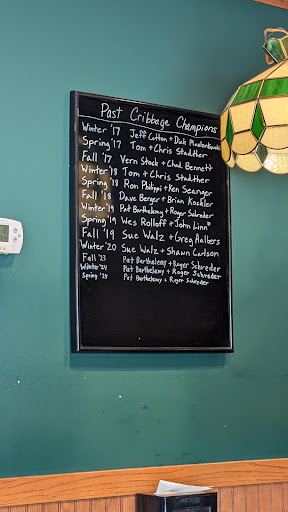 Past Cribbage Champions
Winter '17 Jeff Cotton + Deb
Spring '17 Tom + Chris Stadther
Fall '17 Vern Stock + Chad Bennett
Winter '18 Tom + Chris Stadther
Spring '18 Ron Philippi + Ken Seanger
Fall '18 Dave Berger + Brian Kochler
Winter '19 Pat Barthelemy + Roger Schreder
Spring '19 Wes Rolloff + John Linn
Fall '19 Sue Walz + Greg Aalbers
Winter '20 Sue Walz + Shawn Carlson
Fall '23 Pat Barthelemy + Roger Schreder
Winter '24 Pat Barthelemy + Roger Schreder
Spring '24 Pat Barthelemy + Roger Schreder